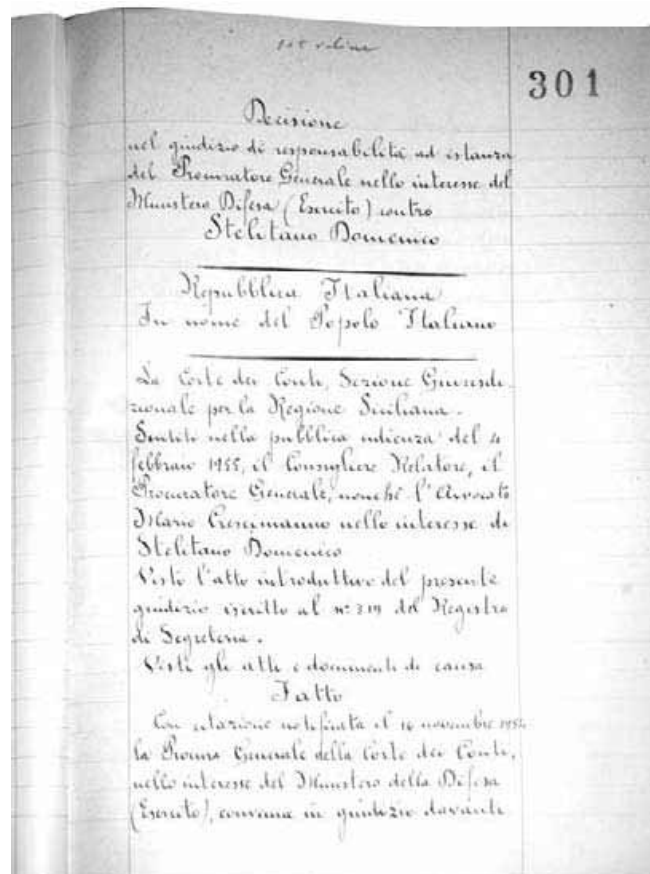 301
Decisione
nel giudizio di responsabilità ad istanza
del Procuratore Generale nello interesse del
Ministero Difesa (Esercito) contro
Stelitano Domenico
Repubblica Italiana
In nome del Popolo Italiano
La Corte dei Conti, Sezione Giurisdi-
zionale per la Regione Siciliana.
Sentiti nella pubblica udienza del 4
febbraio 1955, il Consigliere Relatore, il
Procuratore Generale, nonché l'Avvocato
Mario Crescimanno nello interesse di
Stelitano Domenico
Visto l'atto introduttivo del presente
giudizio iscritto al n° 319 del Registro
di Segreteria.
Visti gli atti e documenti di causa
Fatto
Con citazione notificata il 16 novembre 1954
la Procura Generale della Corte dei Conti,
nello interesse del Ministero della Difesa
(Esercito), conveniva in giudizio davanti